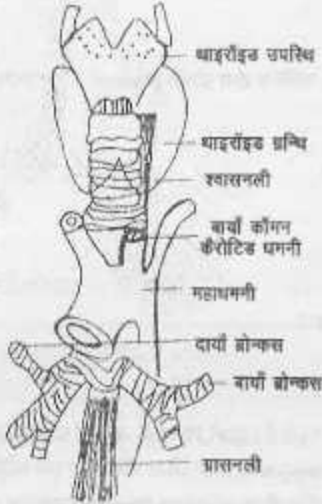 थाइरॉइड उपस्थि
थाइरॉइड ग्रन्थि
श्वासनली
बायाँ कॉमन
कैरोटिड धमनी
महाधमनी
दायाँ ब्रोन्कस
बायाँ ब्रोन्कस
ग्रासनली